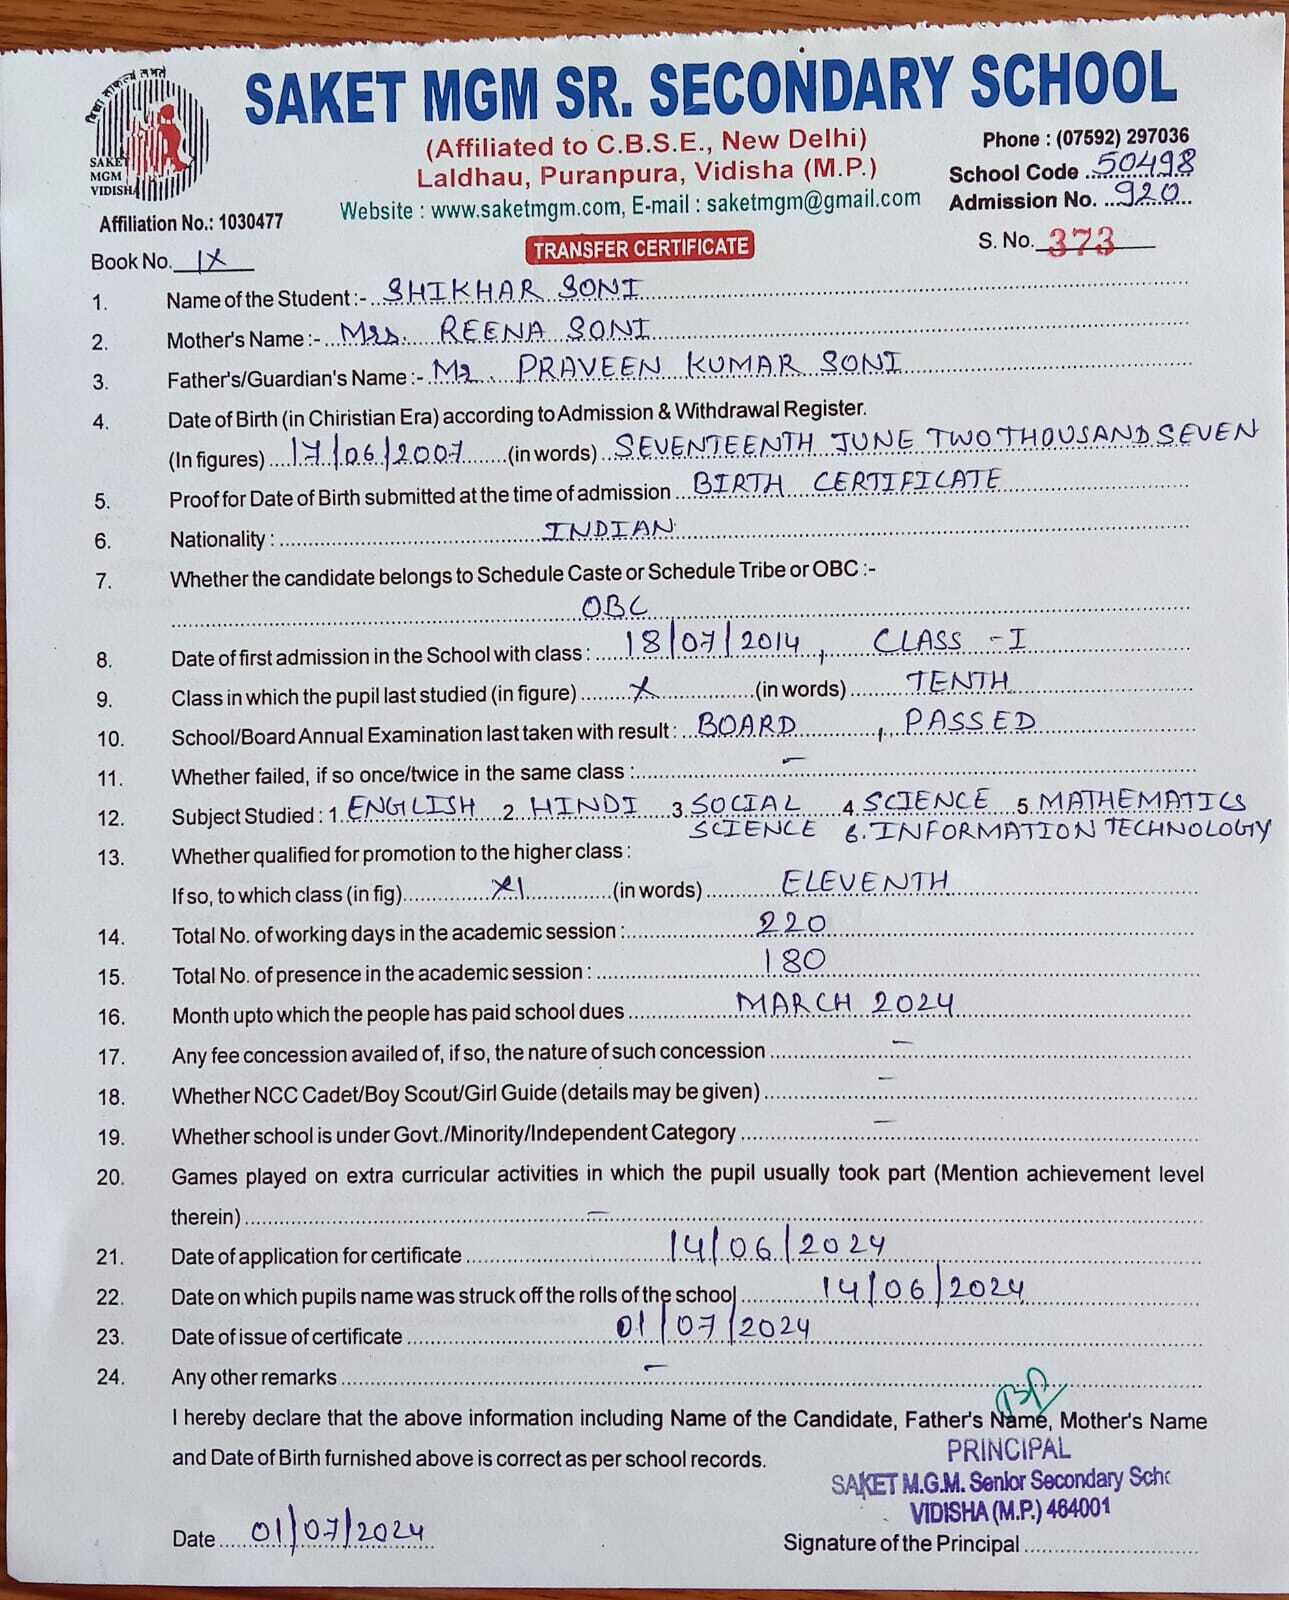 SAKET MGM SR. SECONDARY SCHOOL
(Affiliated to C.B.S.E., New Delhi)
Laldhau, Puranpura, Vidisha (M.P.)
Website : www.saketmgm.com, E-mail : saketmgm@gmail.com
SAKET
MGM
VIDISHA
Affiliation No.: 1030477
Phone : (07592) 297036
School Code 50498
Admission No. 920
Book No. IX
TRANSFER CERTIFICATE
S. No. 373
1. Name of the Student :- SHIKHAR SONI
2. Mother's Name :- Mrs. REENA SONI
3. Father's/Guardian's Name :- Mr. PRAVEEN KUMAR SONI
4. Date of Birth (in Chiristian Era) according to Admission & Withdrawal Register.
(In figures) 17/06/2007 (in words) SEVENTEENTH JUNE TWO THOUSAND SEVEN
5. Proof for Date of Birth submitted at the time of admission BIRTH CERTIFICATE
6. Nationality : INDIAN
7. Whether the candidate belongs to Schedule Caste or Schedule Tribe or OBC :-
OBC
8. Date of first admission in the School with class : 18/07/2014, CLASS - I
9. Class in which the pupil last studied (in figure) X (in words) TENTH
10. School/Board Annual Examination last taken with result : BOARD , PASSED
11. Whether failed, if so once/twice in the same class : -
12. Subject Studied : 1. ENGLISH 2. HINDI 3. SOCIAL 4. SCIENCE 5. MATHEMATICS
SCIENCE 6. INFORMATION TECHNOLOGY
13. Whether qualified for promotion to the higher class :
If so, to which class (in fig) XI (in words) ELEVENTH
14. Total No. of working days in the academic session : 220
15. Total No. of presence in the academic session : 180
16. Month upto which the people has paid school dues MARCH 2024
17. Any fee concession availed of, if so, the nature of such concession -
18. Whether NCC Cadet/Boy Scout/Girl Guide (details may be given) -
19. Whether school is under Govt./Minority/Independent Category -
20. Games played on extra curricular activities in which the pupil usually took part (Mention achievement level
therein) -
21. Date of application for certificate 14/06/2024
22. Date on which pupils name was struck off the rolls of the school 14/06/2024
23. Date of issue of certificate 01/07/2024
24. Any other remarks -
I hereby declare that the above information including Name of the Candidate, Father's Name, Mother's Name
and Date of Birth furnished above is correct as per school records.
PRINCIPAL
SAKET M.G.M. Senior Secondary Scho
VIDISHA (M.P.) 464001
Date 01/07/2024
Signature of the Principal